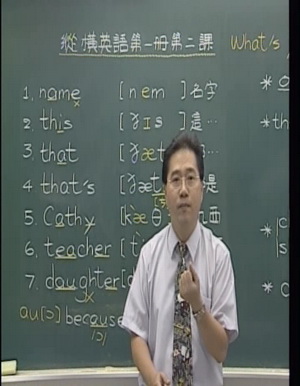 縱橫英語第一冊第二課 What's
1. name [nem] 名字
2. this [ðɪs] 這…
3. that [ðæt
4. that's [ðæt 是
5. Cathy [kæθ 西
6. teacher [t
7. daughter [d
au[ɔ] because
[ɔ]
* th
*
* c